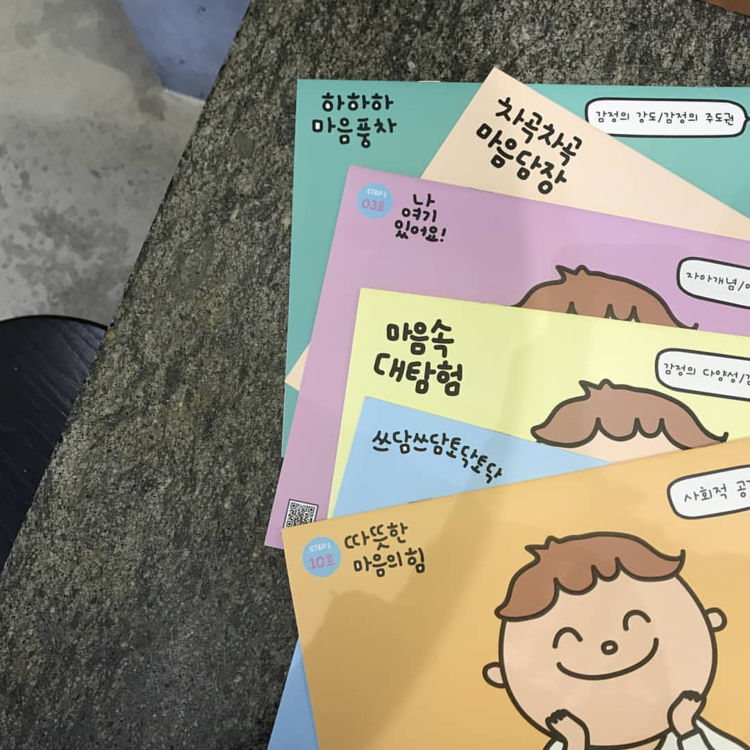 하하하
마음풍차
차곡차곡
마음담장
감정의 강도/감정의 주도권
STEP 1
03호
나
여기
있어요!
자아개념/
마음속
대탐험
감정의 다양성/
쓰담쓰담토닥토닥
STEP 1
10호
따뜻한
마음의 힘
사회적